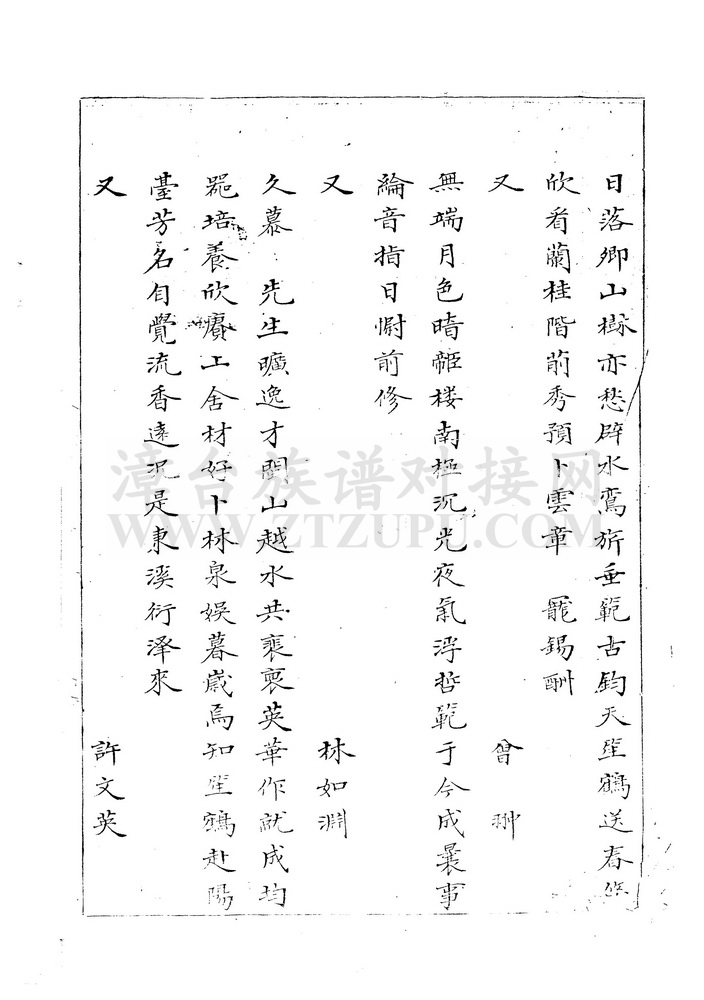 日落鄉山樹亦愁辟水鸞旂垂範古鈞天笙鶴送春悠
欣看蘭桂階前秀預卜雲章 寵錫酬
又 曾翀
無端月色暗郵楼南極沉光夜氣浮哲範于今成曩事
綸音指日慰前修
又 林如淵
久慕 先生曠逸才閩山越水共裴裒英華作就成均
器培養欣賡上舍材好卜林泉娛暮嵗焉知笙鶴赴陽
臺芳名自覺流香遠况是東溪衍澤來
又 許文英
漳台族谱对接网
WWW.ZTZUPU.COM